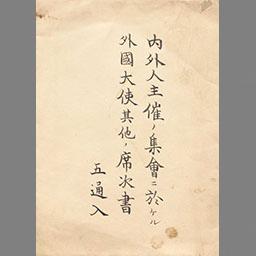 内外人主催ノ集會ニ於ケル
外國大使其他ノ席次書
五通入